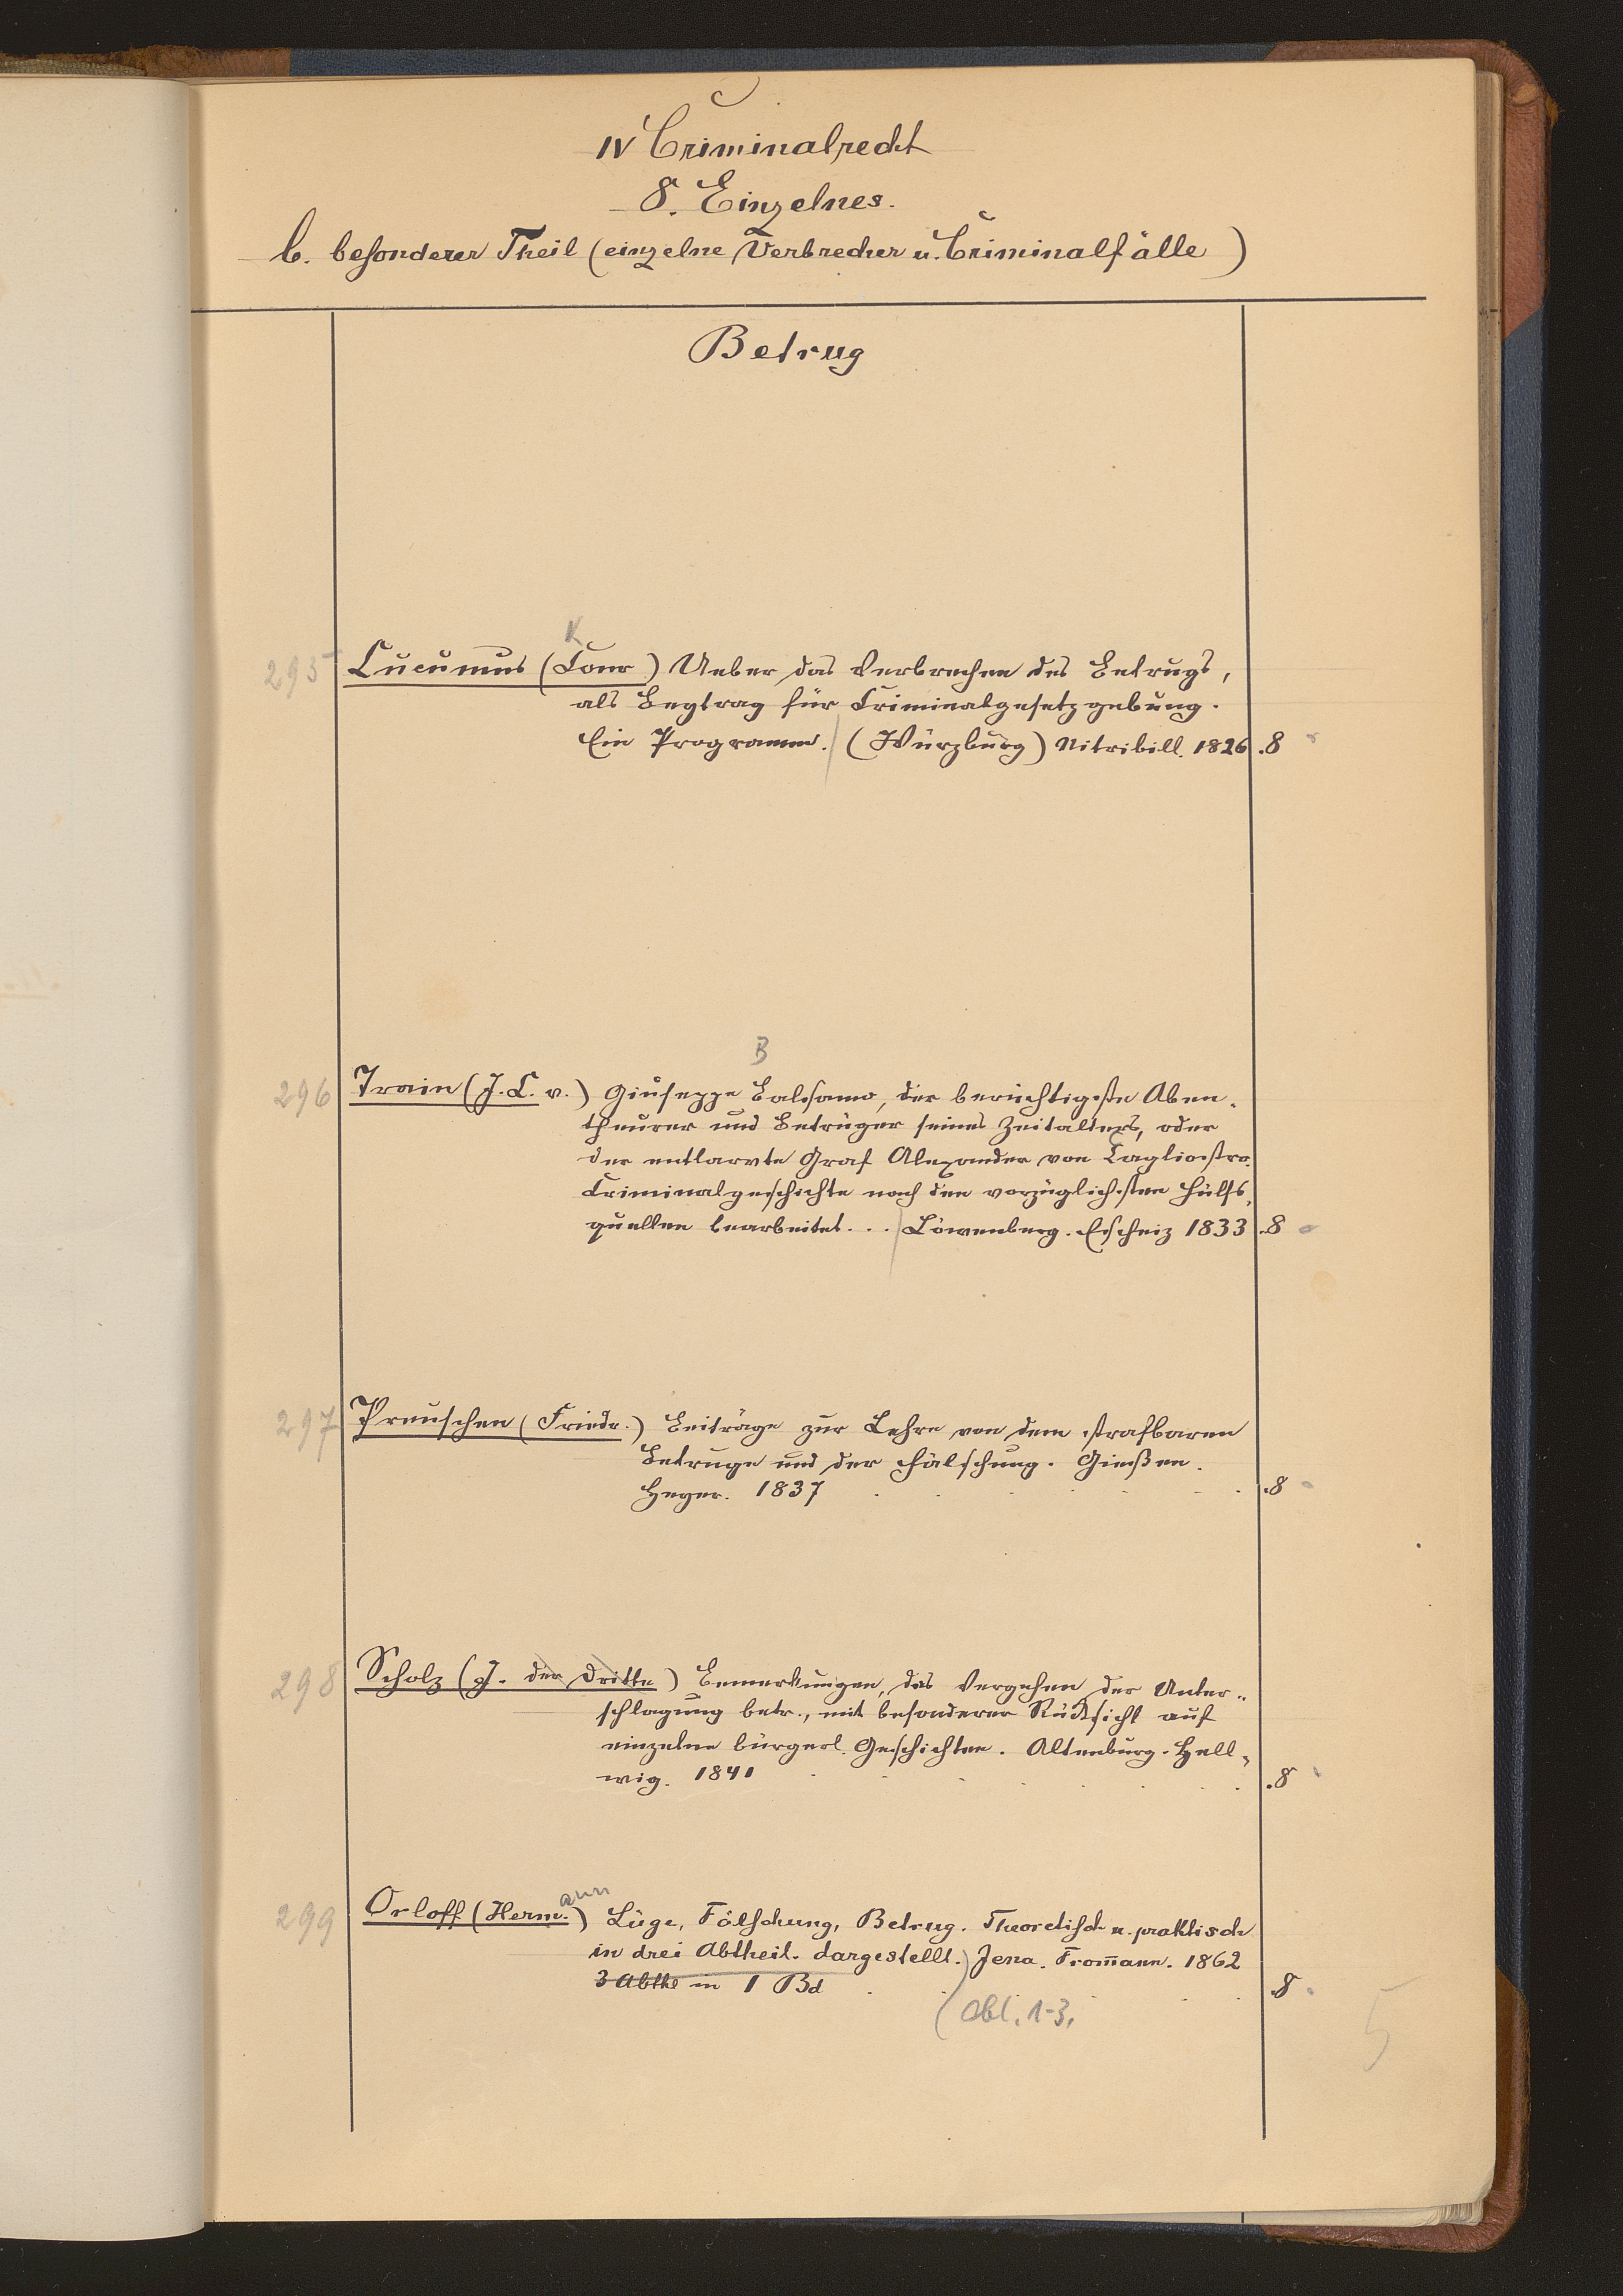 IV Criminalrecht
8. Einzelnes.
b. besonderer Theil (einzelne Verbrecher u. Criminalfälle)
Betrug
K
295 Cucumus (Conr.) Ueber das Verbrechen des Betrugs,
als Beytrag für Criminalgesetzgebung.
Ein Programm. (Würzburg) Nitribill. 1826 .8
B
296 Train (J. C. v.) Giuseppe Balsamo, der berüchtigste Aben-
theurer und Betrüger seines Zeitalters, oder
der entlarvte Graf Alexander von Cagliostro.
Criminalgeschichte nach den vorzüglichsten Hülfs-
quellen bearbeitet... Löwenberg. Eschrig 1833 .8
297 Preuschen (Friedr.) Beiträge zur Lehre von dem strafbaren
Betruge und der Fälschung. Gießen.
Heyer. 1837 .8
298 Scholz (J. der Dritte) Bemerkungen, das Vergehen der Unter-
schlagung betr., mit besonderer Rücksicht auf
einzelne bürgerl. Geschichten. Altenburg. Hell-
wig. 1841 .8
ann
299 Orloff (Herm.) Lüge, Fälschung, Betrug. Theoretisch u. praktisch
in drei Abtheil. dargestellt. Jena. From̄ann. 1862
3 Abthl in 1 Bd .8
(Abt. 1-3.
5